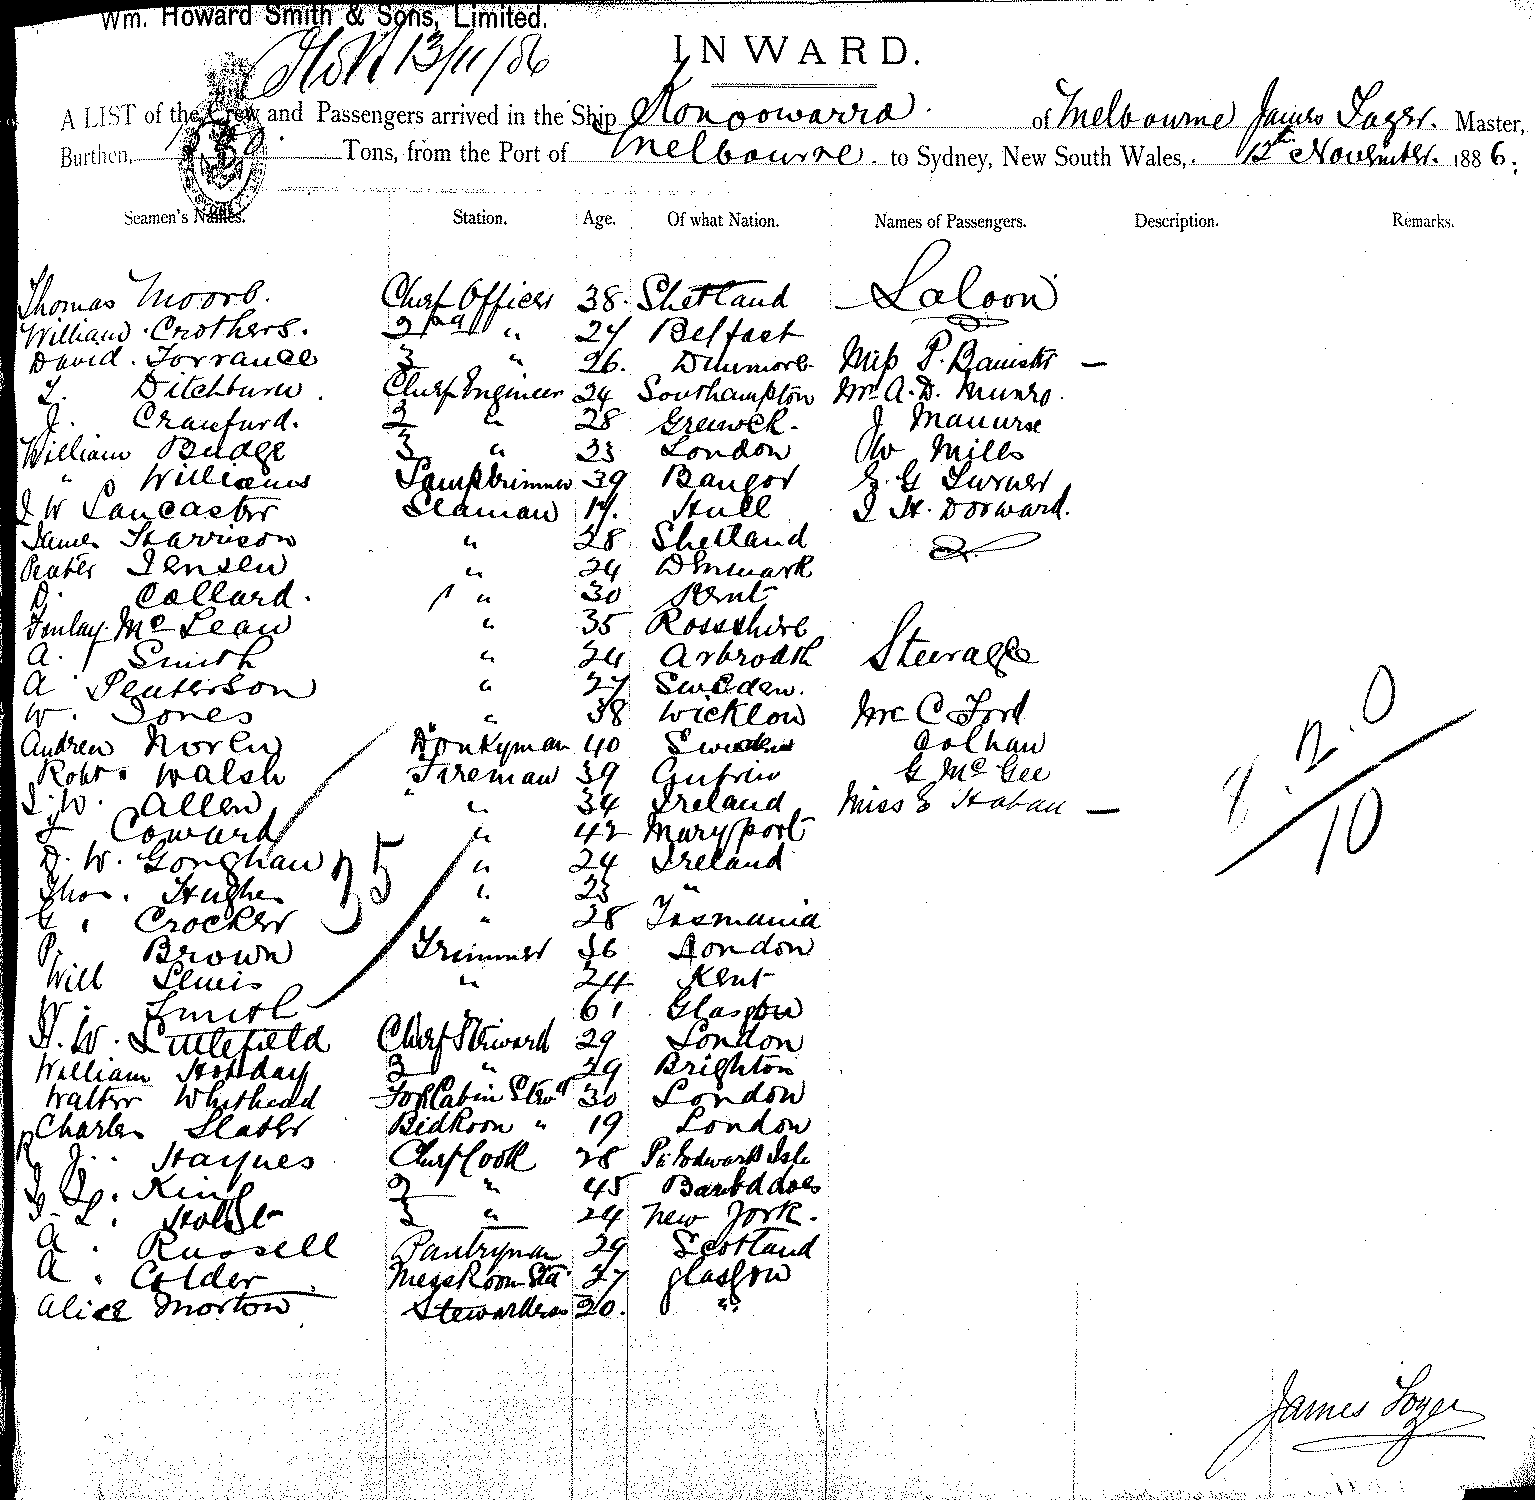 Wm. Howard Smith & Sons, Limited.
13/11/86
INWARD.
A LIST of the Crew and Passengers arrived in the Ship Konoowarra. of Melbourne James Master,
Burthen, Tons, from the Port of Melbourne to Sydney, New South Wales, 12th November. 1886.
Seamen's Names. Station. Age. Of what Nation. Names of Passengers. Description. Remarks.
Thomas Moore. Chief Officer 38. Shetland Saloon
William Crothers. 2nd " 27 Belfast
David Torrance 3 " 26. Miss P. Banister —
Ditchburn. Chief Engineer 24 Southampton Mr A. D. Munro.
J. Craufurd. 2 " 28 Greenock.
William Budge 3 " 23 London W Mills
" Williams Lamptrimmer 39 Bangor G Turner
J W Lancaster Seaman 17. Hull J H. Dorward.
James Harrison " 28 Shetland
Peater Jensen " 24 Denmark
D. Collard. " 30 Kent
Finlay McLean " 35 Rossshire
A. Smith " 24 Arbroath Steerage
A Peaterson " 27 Sweden.
W. Jones " 38 Wicklow Mr C Ford
Andrew Noren Donkyman 40 Sweden Colhan
Robt. Walsh Fireman 39 Antrim G McGee
J. W. Allen " 34 Ireland Miss E Hoban —
Coward " 42 Maryport
D. W. Gonghan " 24 Ireland
Thos. Hughes " 23 "
G. Crocker " 28 Tasmania
P. Brown Trimmer 36 London
Will Lewis " 24 Kent
W. Smith " 61 Glasgow
H. W. Littlefield Chief Steward 29 London
William Holiday 2 " 29 Brighton
Walter Whithead ForCabin Stwd 30 London
Charles Slater BedRoom " 19 London
R J. Haynes Chief Cook 28 Pr. Edward Isle
King 2 " 45 Barbadoes
3 " 24 New York.
A. Russell Pantryman 29 Scotland
A. Colder MessRoom Std 27 Glasgow
Alice Morton Stewardess 20. "
35
8. 12. 0
10
James